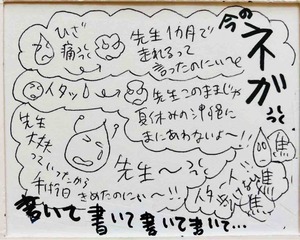 今のネガ
ひざ
痛っ
先生1カ月で
走れるって
言ったのにいて
イタッ!
先生このままじゃ
夏休みの沖縄に
まにあわないよ〜!!
先生
大丈夫
っていったから
先生〜
きめたのにい〜!!
イタイ
焦
焦
焦
書いて書いて書いて書いて…